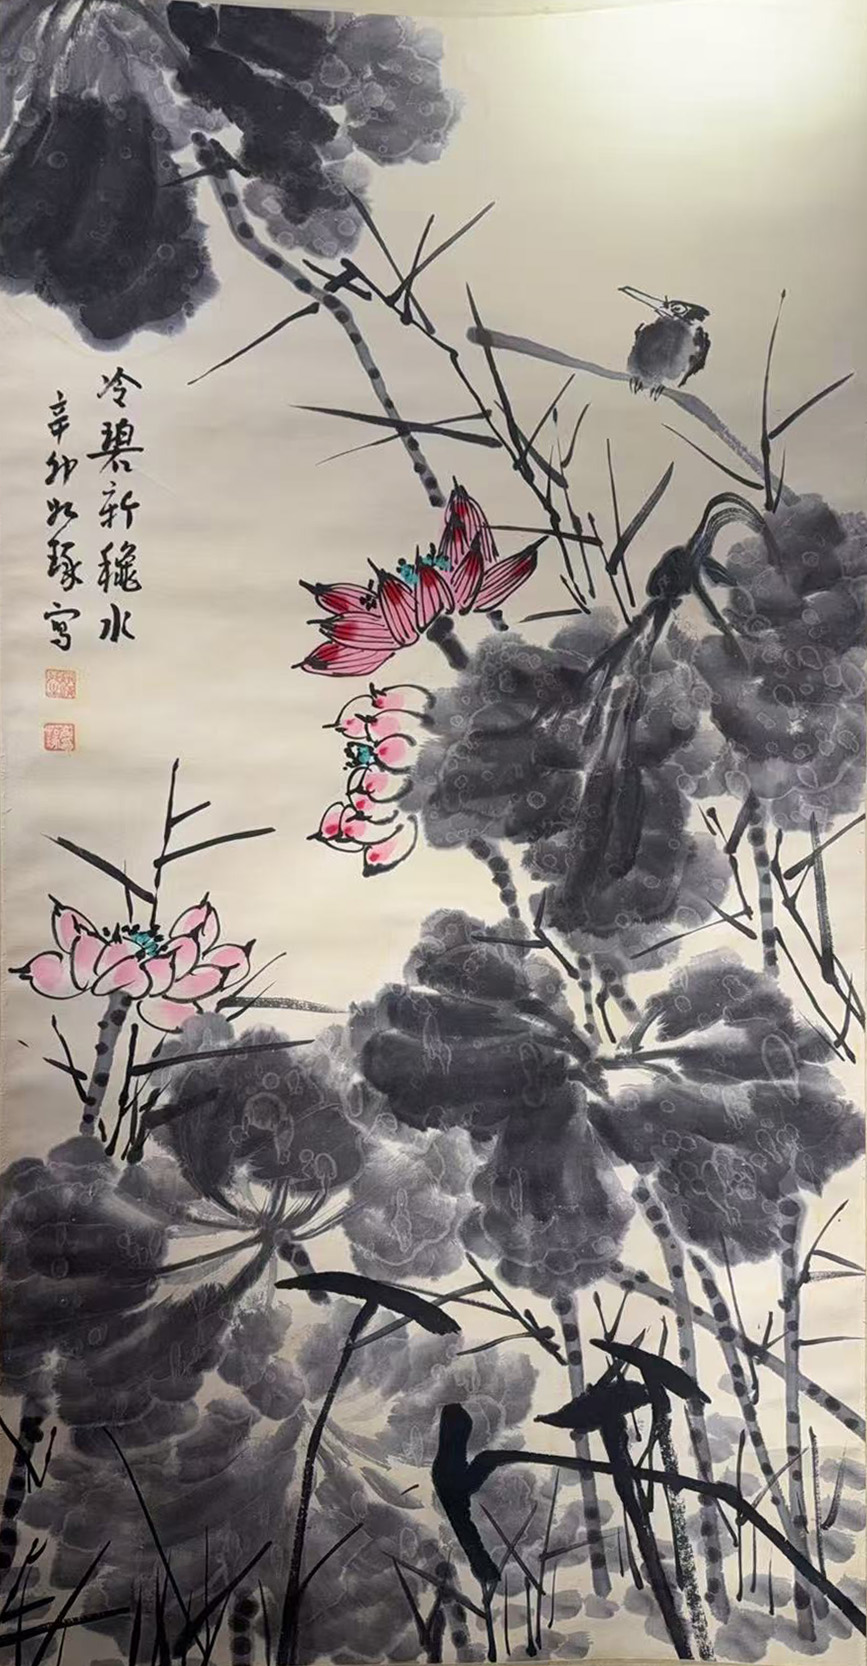 冷碧新秋水
辛卯如琢写